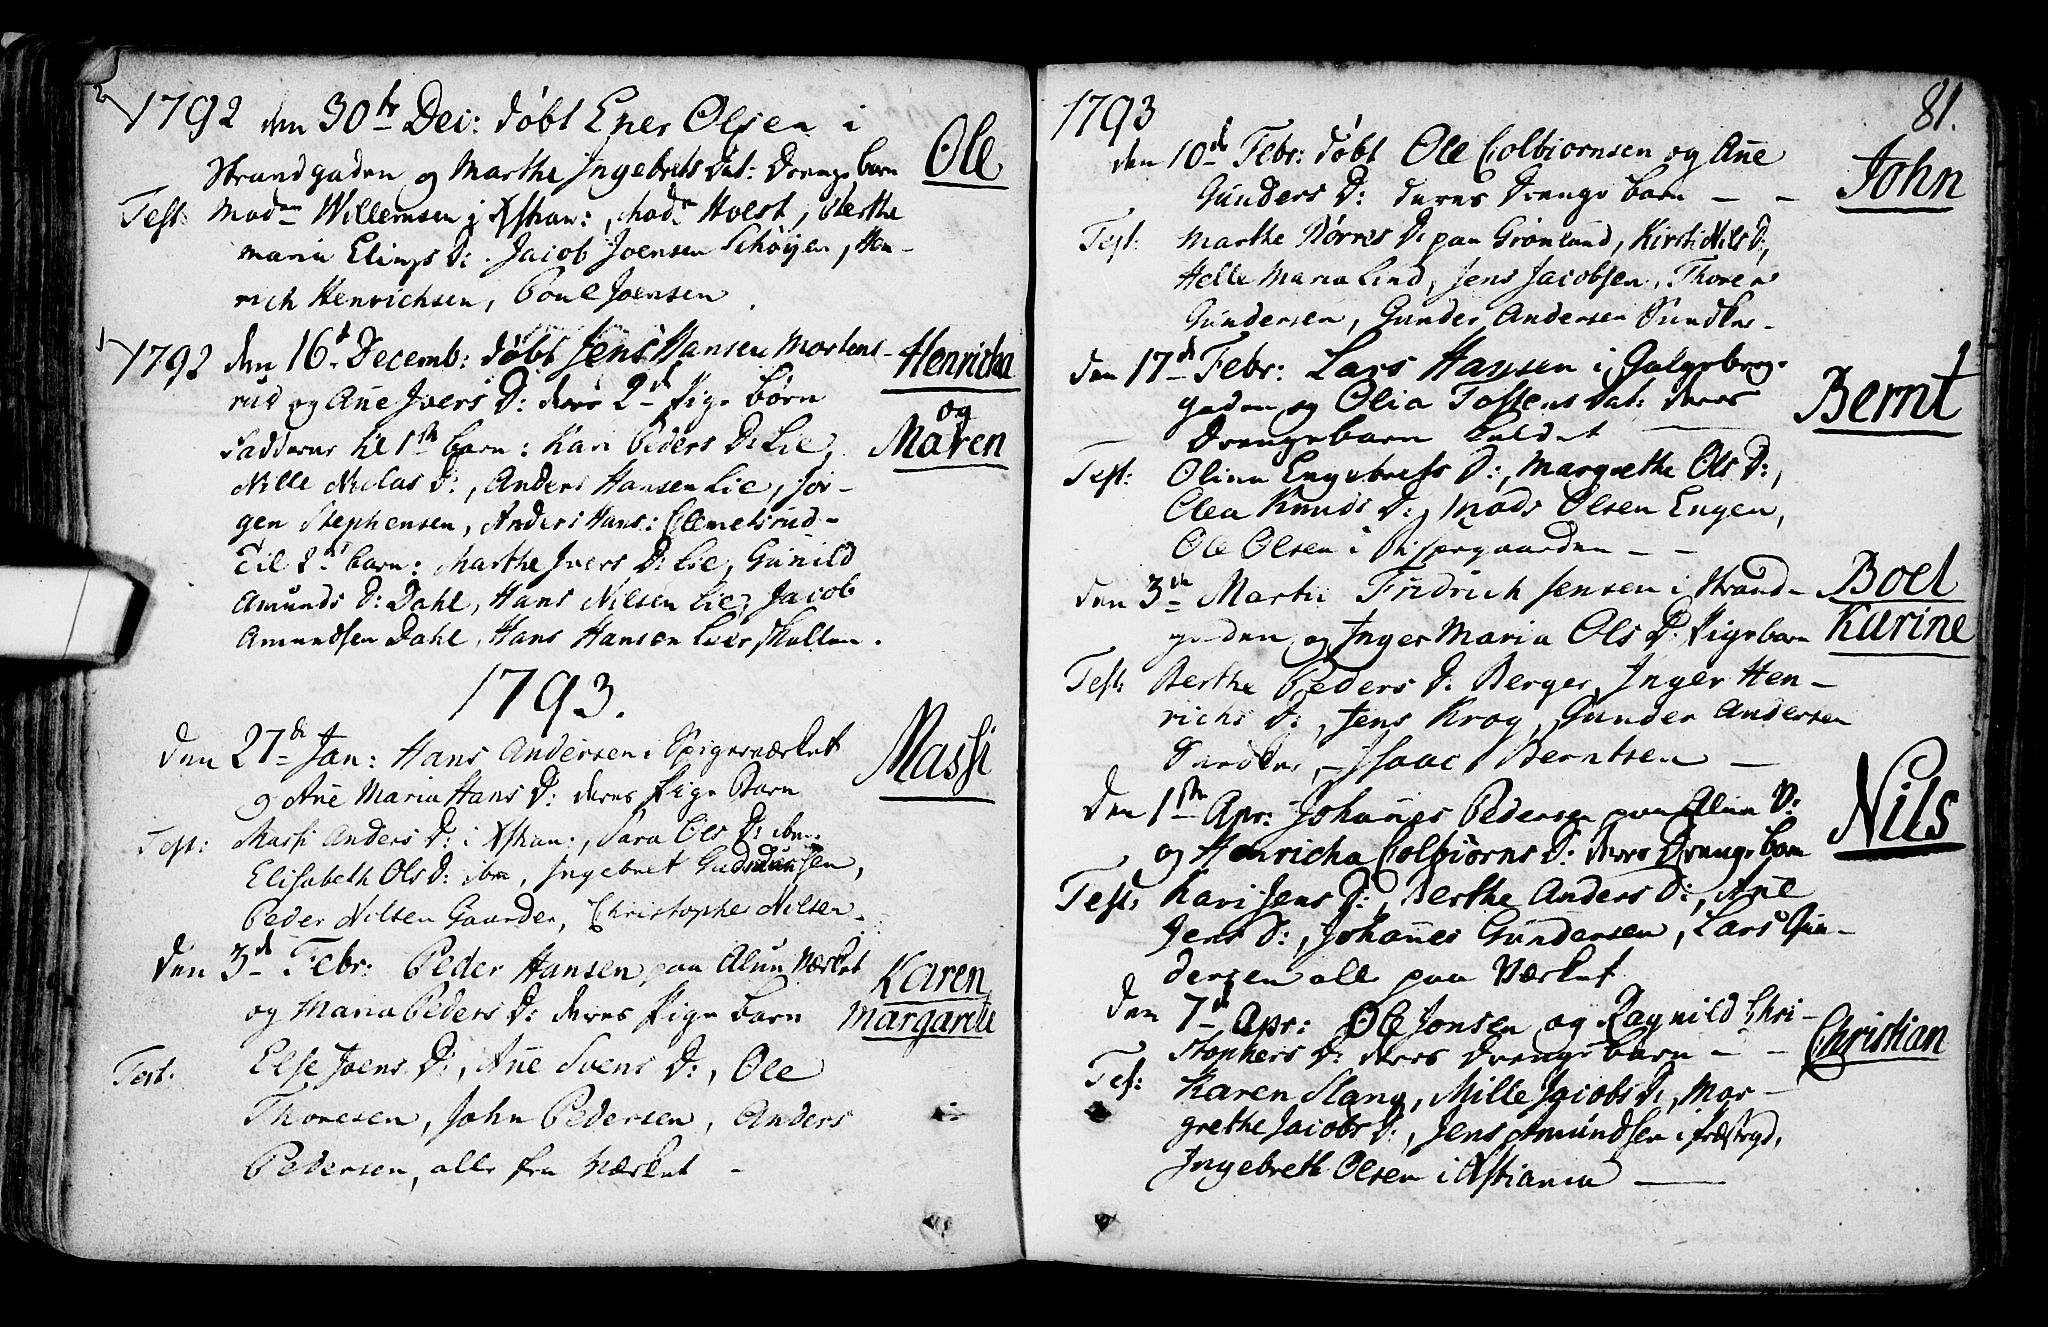 1792 den 30te Dec: døbt Ener Olsen i
Strandgaden og Marthe Ingebrets Dat: Drenge barn
Ole
Test: Madm Willemsen i Xstian:, Mad: Holst, Berthe
Maria Elings D:, Jacob Joensen Schøyen, Hen-
rich Henrichsen, Poul Joensen.
1792 den 16d Decemb: døbt Jens Hansen Mortens-
Henricha
rud og Ane Ivers D: deres 2de Pige børn
og
Fadderne til 1ste barn: Kari Peders D: Lie,
Maren
Nille Niclas D:, Anders Hansen Lie, Jör-
gen Stephensen, Anders Hans: Clemetsrud-
Til 2d barn: Marthe Ivers D: Lie, Gunild
Amunds D: Dahl, Hans Nilsen Lie, Jacob
Amundsen Dahl, Hans Hansen Lierskallen.
1793.
den 27de Jan: Hans Andersen i Spigerværket
og Ane Maria Hans D: deres Pige Barn
Massi
Test: Massi Anders D: i Xstian:, Sara Ols D: ibn:
Elisabeth Ols D: ibn, Ingebret Gudmunsen,
Peder Nilsen Gaarder, Christopher Nilsen.
den 3de Febr: Peder Hansen paa Alun Værket
Karen
og Maria Peders D: deres Pige barn
Margarete
Test: Else Joens D:, Ane Svens D:, Ole
Thoresen, John Pedersen, Anders
Pedersen, alle fra Værket -
81.
1793
den 10de Febr: døbt Ole Colbiørnsen og Ane
John
Gunders D: deres Drenge barn - -
Test: Marthe Nørres D: paa Grønland, Kirsti Nils D:,
Helle Maria Lind, Jens Jacobsen, Thore
Gundersen, Gunder Andersen
den 17de Febr: Lars Hansen i Galgeberg-
gaden og Olia Tostens Dat: deres
Bernt
Drengebarn kaldet
Test: Olina Engebrets D:, Margrethe Ols D:,
Olea Knuds D:, Mads Olsen Engen,
Ole Olsen i - -
den 3de Martii Fridrich Jensen i Strand-
Boel
gaden og Inger Maria Ols D: Pigebarn
Karine
Test: Berthe Peders D: Berger, Inger Hen-
richs D:, Jens Krog, Gunder Andersen
- Isaac Berntsen -
den 1ste Apr: Johanes Pedersen paa Alun V:
Nils
og Henricha Colbiørns D: deres Drenge barn
Test: Kari Jens D:, Berthe Anders D:, Ane
Jens D:, Johanes Gundersen, Lars Gun-
dersen alle paa Værket
den 7de Apr: Ole Jonsen og Ragnild Chri-
stophers D: deres Drenge barn - -
Christian
Test: Karen Stang, Mille Jacobs D:, Mar-
grethe Jacobs D:, Jens Amundsen i
Ingebreth Olsen i Xstiania